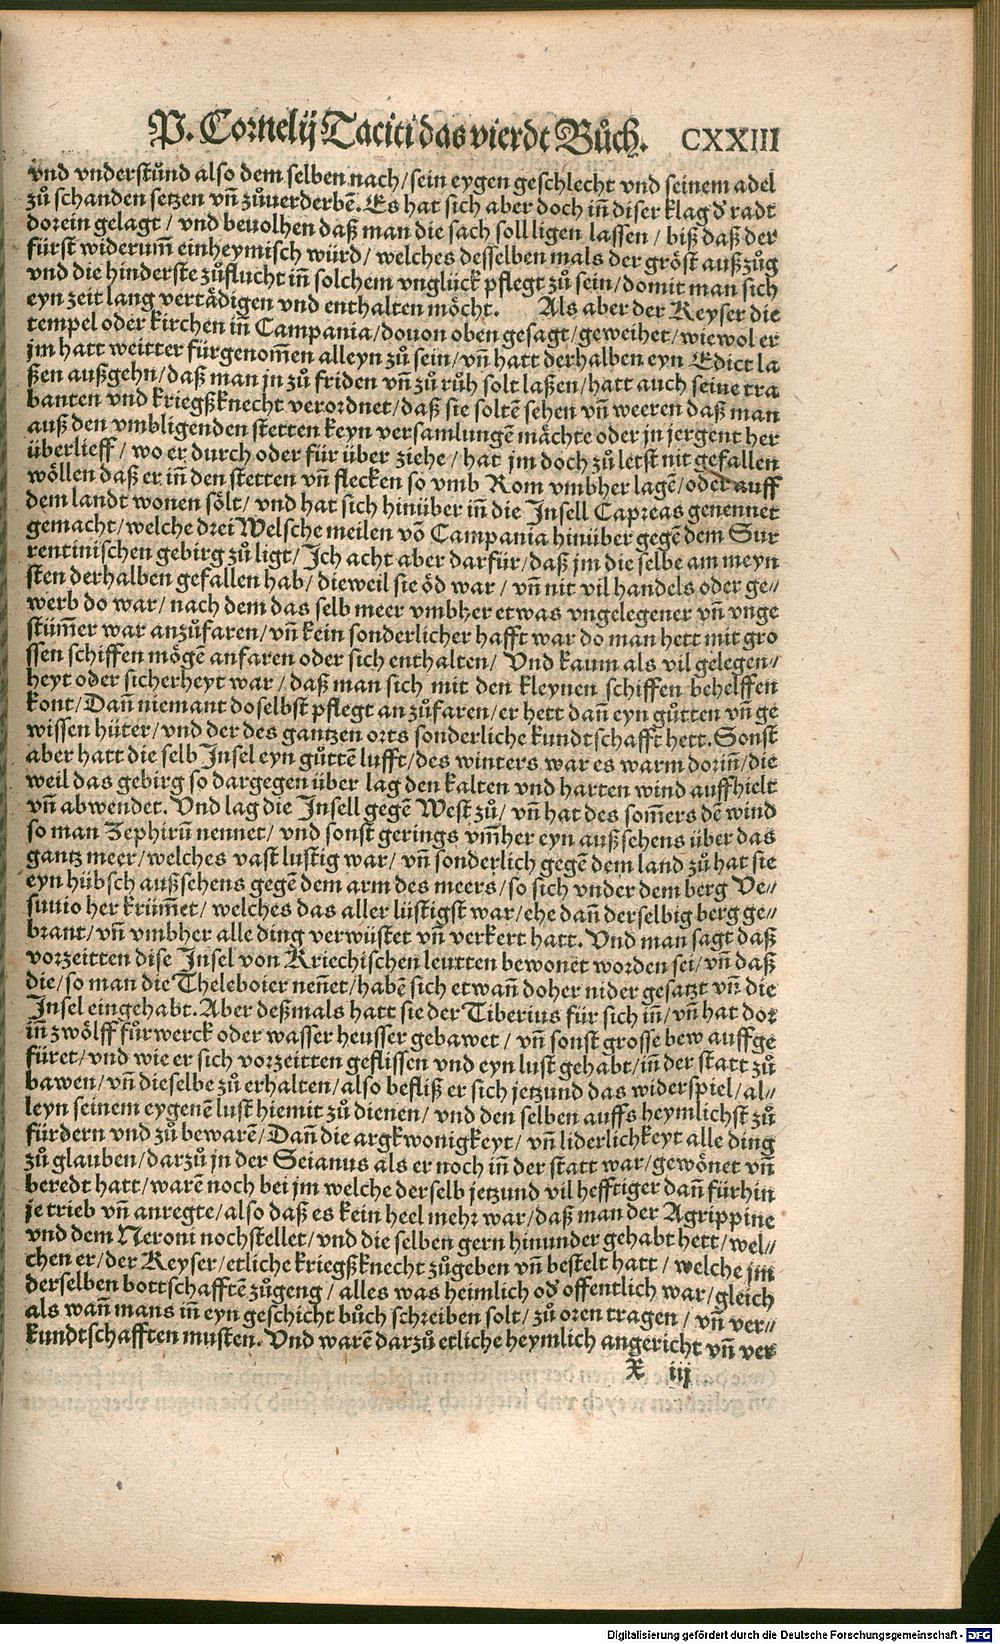 P. Cornelij Taciti das vierdt Bůch. CXXIII
vnd vnderstůnd also dem selben nach/ sein eygen geschlecht vnd seinem adel
zů schanden setzen vñ zůuerderbẽ. Es hat sich aber doch iñ diser klag d' radt
dorein gelagt/ vnd beuolhen daß man die sach soll ligen lassen/ biß daß der
fürst widerum̃ einheymisch würd/ welches desselben mals der gröst außzůg
vnd die hinderste zůflucht iñ solchem vnglück pflegt zů sein/ domit man sich
eyn zeit lang vertädigen vnd enthalten möcht. Als aber der Keyser die
tempel oder kirchen iñ Campania/ douon oben gesagt/ geweihet/ wiewol er
jm hatt weitter fürgenom̃en alleyn zů sein/ vñ hatt derhalben eyn Edict la
ßen außgehn/ daß man jn zů friden vñ zů růh solt laßen/ hatt auch seine tra
banten vnd kriegßknecht verordnet/ daß sie soltẽ sehen vñ weeren daß man
auß den vmbligenden stetten keyn versamlungẽ mächte oder jn jergent her
überlieff/ wo er durch oder für über ziehe/ hat jm doch zů letst nit gefallen
wöllen daß er iñ den stetten vñ flecken so vmb Rom vmbher lagẽ/ oder auff
dem landt wonen sölt/ vnd hat sich hinüber iñ die Insell Capreas genennet
gemacht/ welche drei Welsche meilen võ Campania hinüber gegẽ dem Sur
rentinischen gebirg zů ligt/ Ich acht aber darfür/ daß jm die selbe am meyn
sten derhalben gefallen hab/ dieweil sie öd war/ vñ nit vil handels oder ge⸗
werb do war/ nach dem das selb meer vmbher etwas vngelegener vñ vnge
stüm̃er war anzůfaren/ vñ kein sonderlicher hafft war do man hett mit gro
ssen schiffen mögẽ anfaren oder sich enthalten/ Vnd kaum als vil gelegen⸗
heyt oder sicherheyt war/ daß man sich mit den kleynen schiffen behelffen
kont/ Dañ niemant doselbst pflegt anzůfaren/ er hett dañ eyn gůtten vñ ge
wissen hüter/ vnd der des gantzen orts sonderliche kundtschafft hett. Sonst
aber hatt die selb Insel eyn gůttẽ lufft/ des winters war es warm doriñ/ die
weil das gebirg so dargegen über lag den kalten vnd harten wind auffhielt
vñ abwendet. Vnd lag die Insell gegẽ West zů/ vñ hat des som̃ers dẽ wind
so man Zephirũ nennet/ vnd sonst gerings vm̃her eyn außsehens über das
gantz meer/ welches vast lustig war/ vñ sonderlich gegẽ dem land zů hat sie
eyn hübsch außsehens gegẽ dem arm des meers/ so sich vnder dem berg Ve⸗
suuio her krüm̃et/ welches das aller lüstigst war/ ehe dañ derselbig berg ge⸗
brant/ vñ vmbher alle ding verwüstet vñ verkert hatt. Vnd man sagt daß
vorzeitten dise Insel von Kriechischen leutten bewonet worden sei/ vñ daß
die/ so man die Theleboier neñet/ habẽ sich etwañ doher nider gesatzt vñ die
Insel eingehabt. Aber deßmals hatt sie der Tiberius für sich iñ/ vñ hat dor
iñ zwölff fürwerck oder wasser heusser gebawet/ vñ sonst grosse bew auffge
füret/ vnd wie er sich vorzeitten geflissen vnd eyn lust gehabt/ iñ der statt zů
bawen/ vñ dieselbe zů erhalten/ also befliß er sich jetzund das widerspiel/ al⸗
leyn seinem eygenẽ lust hiemit zů dienen/ vnd den selben auffs heymlichst zů
fürdern vnd zů bewarẽ/ Dañ die argkwonigkeyt/ vñ liderlichkeyt alle ding
zů glauben/ darzů jn der Seianus als er noch iñ der statt war/ gewönet vñ
beredt hatt/ warẽ noch bei jm welche derselb jetzund vil hefftiger dañ fürhin
je trieb vñ anregte/ also daß es kein heel mehr war/ daß man der Agrippine
vnd dem Neroni nochstellet/ vnd die selben gern hinunder gehabt hett/ wel⸗
chen er/ der Keyser/ etliche kriegßknecht zůgeben vñ bestelt hatt/ welche jm
derselben bottschafftẽ zůgeng/ alles was heimlich od' offentlich war/ gleich
als wañ mans iñ eyn geschicht bůch schreiben solt/ zů oren tragen/ vñ ver⸗
kundtschafften musten. Vnd warẽ darzů etliche heymlich angericht vñ ver
X iij
Digitalisierung gefördert durch die Deutsche Forschungsgemeinschaft - DFG